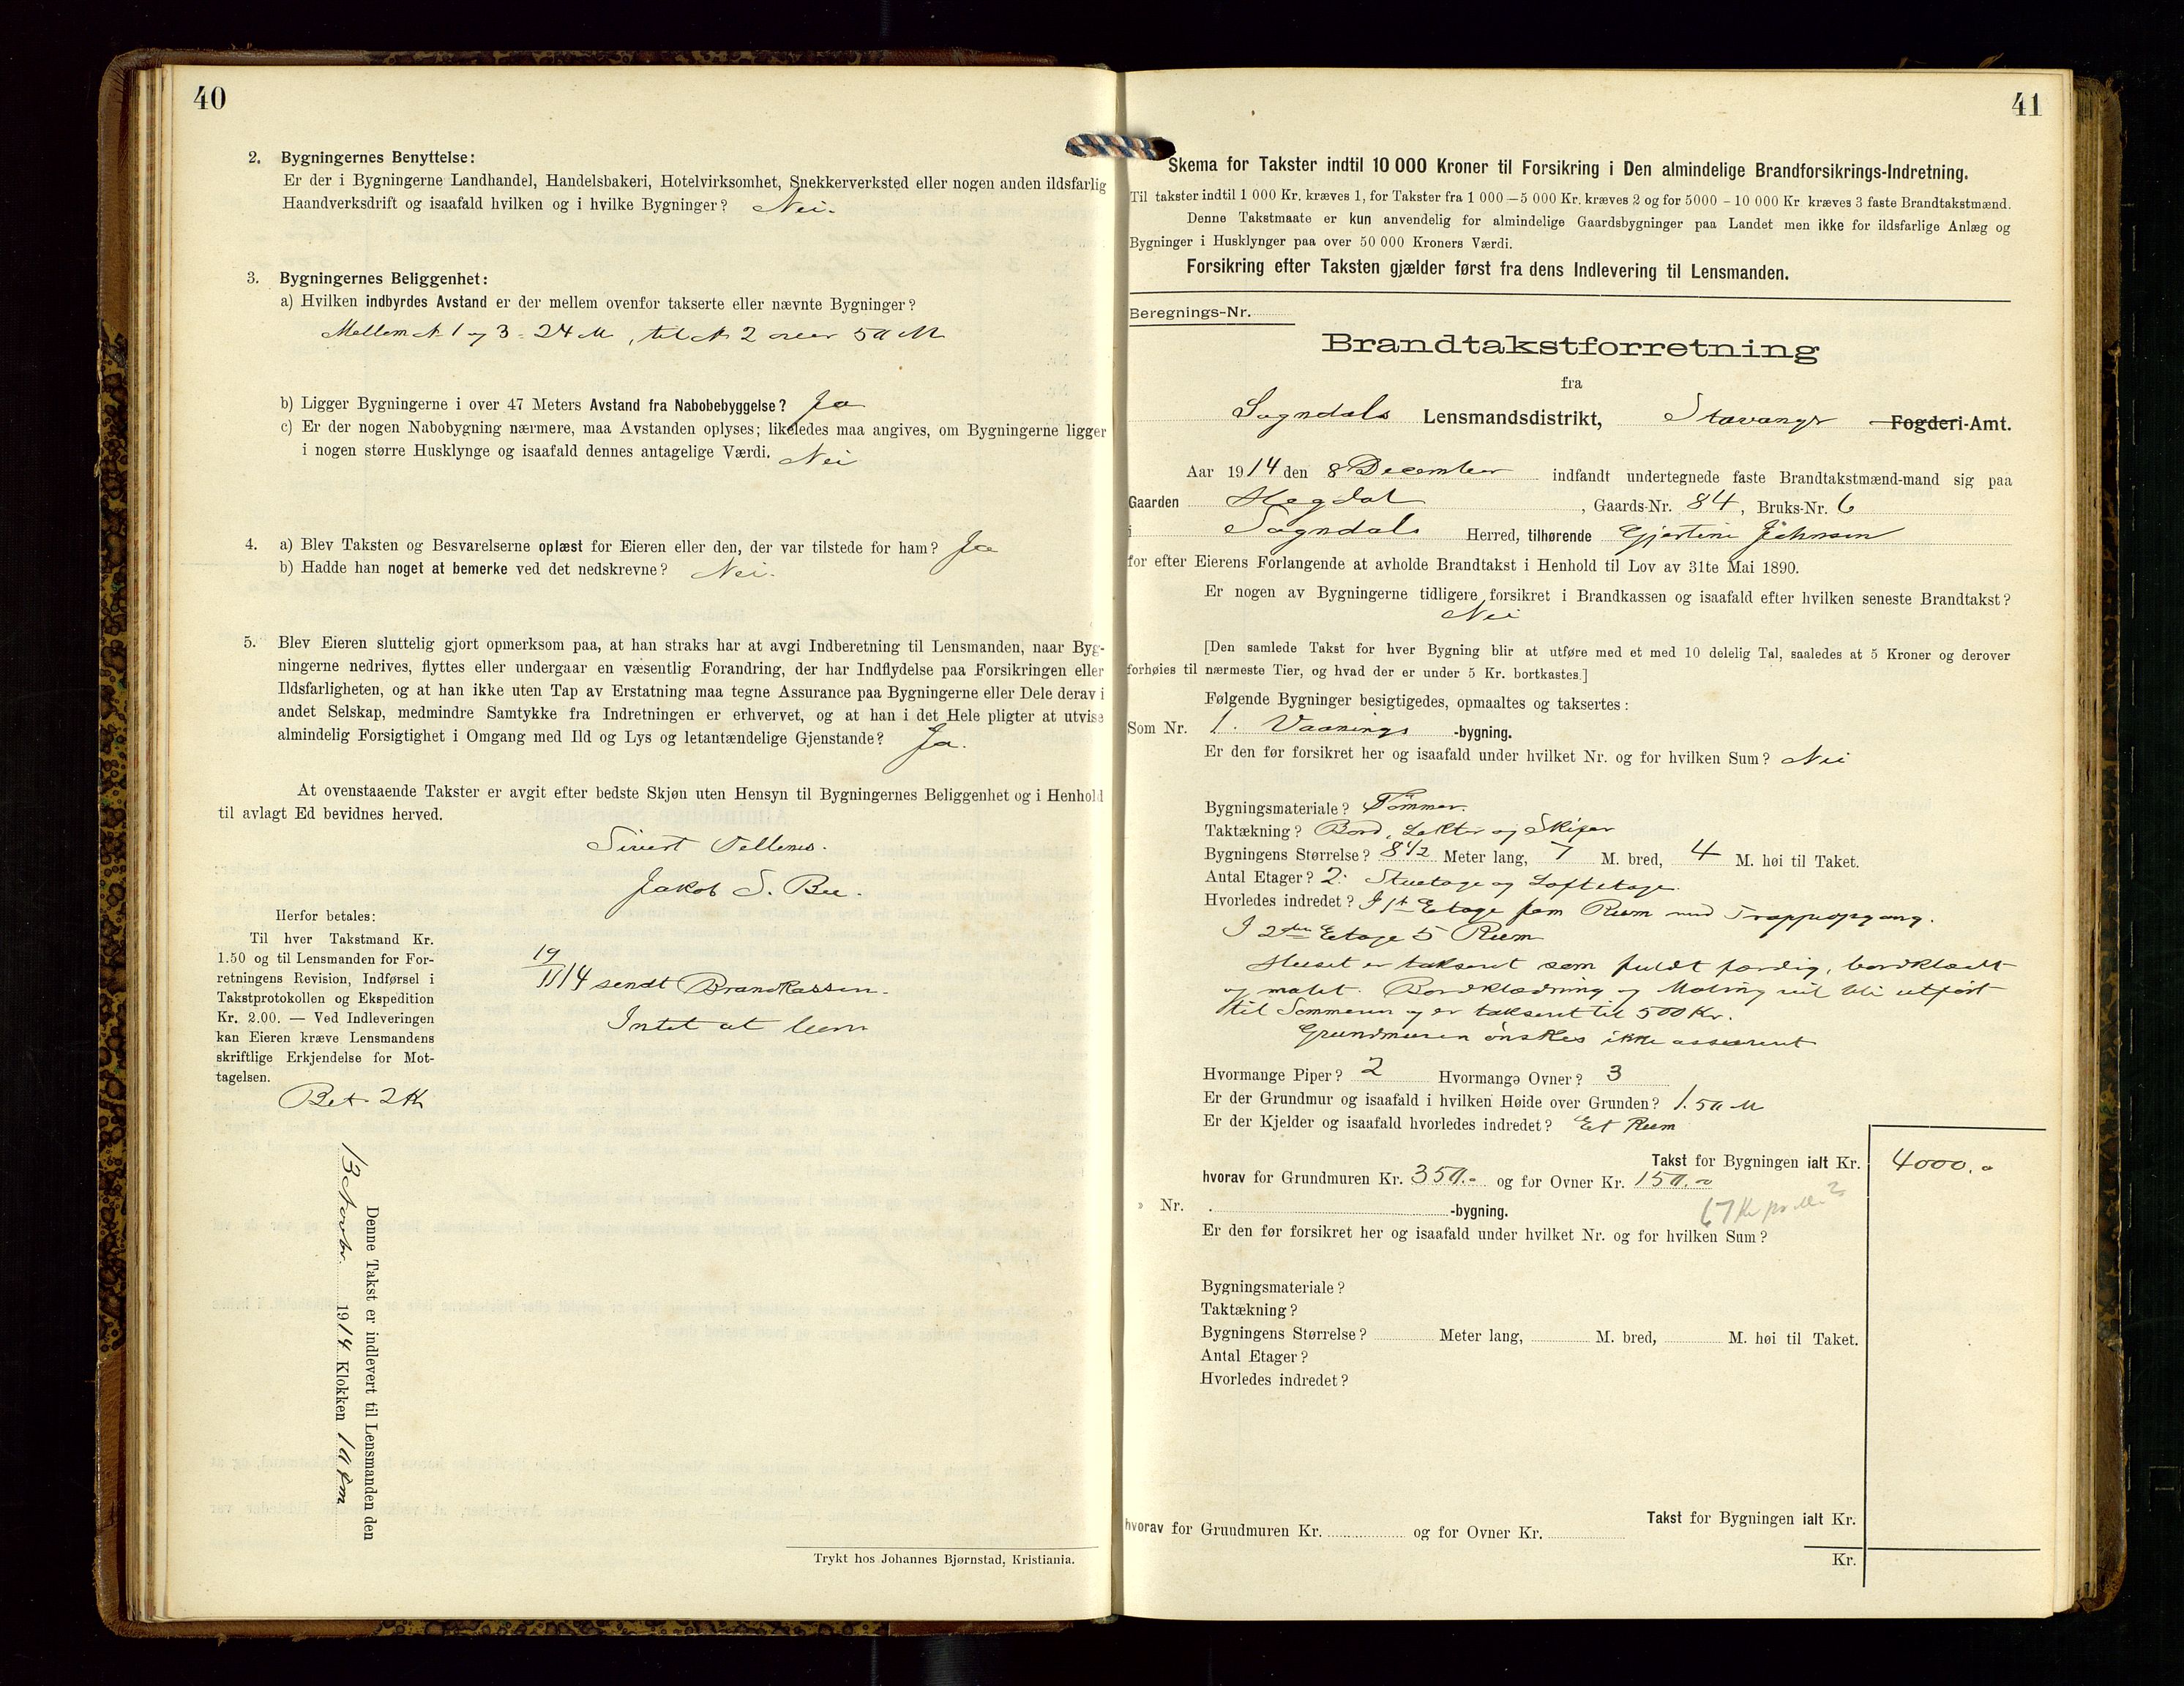 40
2. Bygningernes Benyttelse:
Er der i Bygningerne Landhandel, Handelsbakeri, Hotelvirksomhet, Snekkerverksted eller nogen anden ildsfarlig
Haandverksdrift og isaafald hvilken og i hvilke Bygninger? Nei.
3. Bygningernes Beliggenhet:
a) Hvilken indbyrdes Avstand er der mellem ovenfor takserte eller nævnte Bygninger?
Mellem N 1 og 3 = 24 M, til N 2 over 50 M
b) Ligger Bygningerne i over 47 Meters Avstand fra Nabobebyggelse? Ja
c) Er der nogen Nabobygning nærmere, maa Avstanden oplyses; likeledes maa angives, om Bygningerne ligger
i nogen større Husklynge og isaafald dennes antagelige Værdi. Nei
4. a) Blev Taksten og Besvarelserne oplæst for Eieren eller den, der var tilstede for ham? Ja
b) Hadde han noget at bemerke ved det nedskrevne? Nei.
5. Blev Eieren sluttelig gjort opmerksom paa, at han straks har at avgi Indberetning til Lensmanden, naar Byg-
ningerne nedrives, flyttes eller undergaar en væsentlig Forandring, der har Indflydelse paa Forsikringen eller
Ildsfarligheten, og at han ikke uten Tap av Erstatning maa tegne Assurance paa Bygningerne eller Dele derav i
andet Selskap, medmindre Samtykke fra Indretningen er erhvervet, og at han i det Hele pligter at utvise
almindelig Forsigtighet i Omgang med Ild og Lys og letantændelige Gjenstande? Ja.
At ovenstaaende Takster er avgit efter bedste Skjøn uten Hensyn til Bygningernes Beliggenhet og i Henhold
til avlagt Ed bevidnes herved.
Sivert
Jakob S. Bu.
Herfor betales:
Til hver Takstmand Kr.
1.50 og til Lensmanden for For-
retningens Revision, Indførsel i
Takstprotokollen og Ekspedition
Kr. 2.00. — Ved Indleveringen
kan Eieren kræve Lensmandens
skriftlige Erkjendelse for Mot-
tagelsen.
Bet. 2 Kr
19/11 14 sendt Brandkassen.
Intet at bem
Denne Takst er indlevert til Lensmanden den
13 Novbr. 1914 Klokken 10 fm
Trykt hos Johannes Bjørnstad, Kristiania.
41
Skema for Takster indtil 10 000 Kroner til Forsikring i Den almindelige Brandforsikrings-Indretning.
Til takster indtil 1 000 Kr. kræves 1, for Takster fra 1 000 — 5 000 Kr. kræves 2 og for 5000 - 10 000 Kr kræves 3 faste Brandtakstmænd.
Denne Takstmaate er kun anvendelig for almindelige Gaardsbygninger paa Landet men ikke for ildsfarlige Anlæg og
Bygninger i Husklynger paa over 50 000 Kroners Værdi.
Forsikring efter Taksten gjælder først fra dens Indlevering til Lensmanden.
Beregnings-Nr.
Brandtakstforretning
fra
Sogndals Lensmandsdistrikt, Stavanger Fogderi-Amt.
Aar 1914 den 8 December indfandt undertegnede faste Brandtakstmænd-mand sig paa
Gaarden Hegdal, Gaards-Nr. 84, Bruks-Nr. 6
i Sogndals Herred, tilhørende Gjertine Johnsen
for efter Eierens Forlangende at avholde Brandtakst i Henhold til Lov av 31te Mai 1890.
Er nogen av Bygningerne tidligere forsikret i Brandkassen og isaafald efter hvilken seneste Brandtakst?
Nei
[Den samlede Takst for hver Bygning blir at utføre med et med 10 delelig Tal, saaledes at 5 Kroner og derover
forhøies til nærmeste Tier, og hvad der er under 5 Kr. bortkastes.]
Følgende Bygninger besigtigedes, opmaaltes og taksertes:
Som Nr. 1. Vaanings -bygning.
Er den før forsikret her og isaafald under hvilket Nr. og for hvilken Sum? Nei
Bygningsmateriale? Tømmer.
Taktækning? Bord, Lekter og Skifer
Bygningens Størrelse? 8 1/2 Meter lang, 7 M. bred, 4 M. høi til Taket.
Antal Etager? 2: Stuetage og Loftetage.
Hvorledes indredet? I 1ste Etage fem Rum med Trappeopgang.
I 2den Etage 5 Rum
Huset er taksert som fuldt færdig, bordklædt
og malet. Bordklædning og Maling vil bli utført
til Sommeren og er taksert til 500 Kr.
Grundmuren ønskes ikke assurert
Hvormange Piper? 2 Hvormange Ovner? 3
Er der Grundmur og isaafald i hvilken Høide over Grunden? 1.50 M
Er der Kjelder og isaafald hvorledes indredet? Et Rum
Takst for Bygningen ialt Kr. 4000.0
hvorav for Grundmuren Kr. 350.- og for Ovner Kr. 150.-
67 Kr pr M2
» Nr. -bygning.
Er den før forsikret her og isaafald under hvilket Nr. og for hvilken Sum?
Bygningsmateriale?
Taktækning?
Bygningens Størrelse? Meter lang, M. bred, M. høi til Taket.
Antal Etager?
Hvorledes indredet?
Takst for Bygningen ialt Kr.
hvorav for Grundmuren Kr. og for Ovner Kr.
Kr.